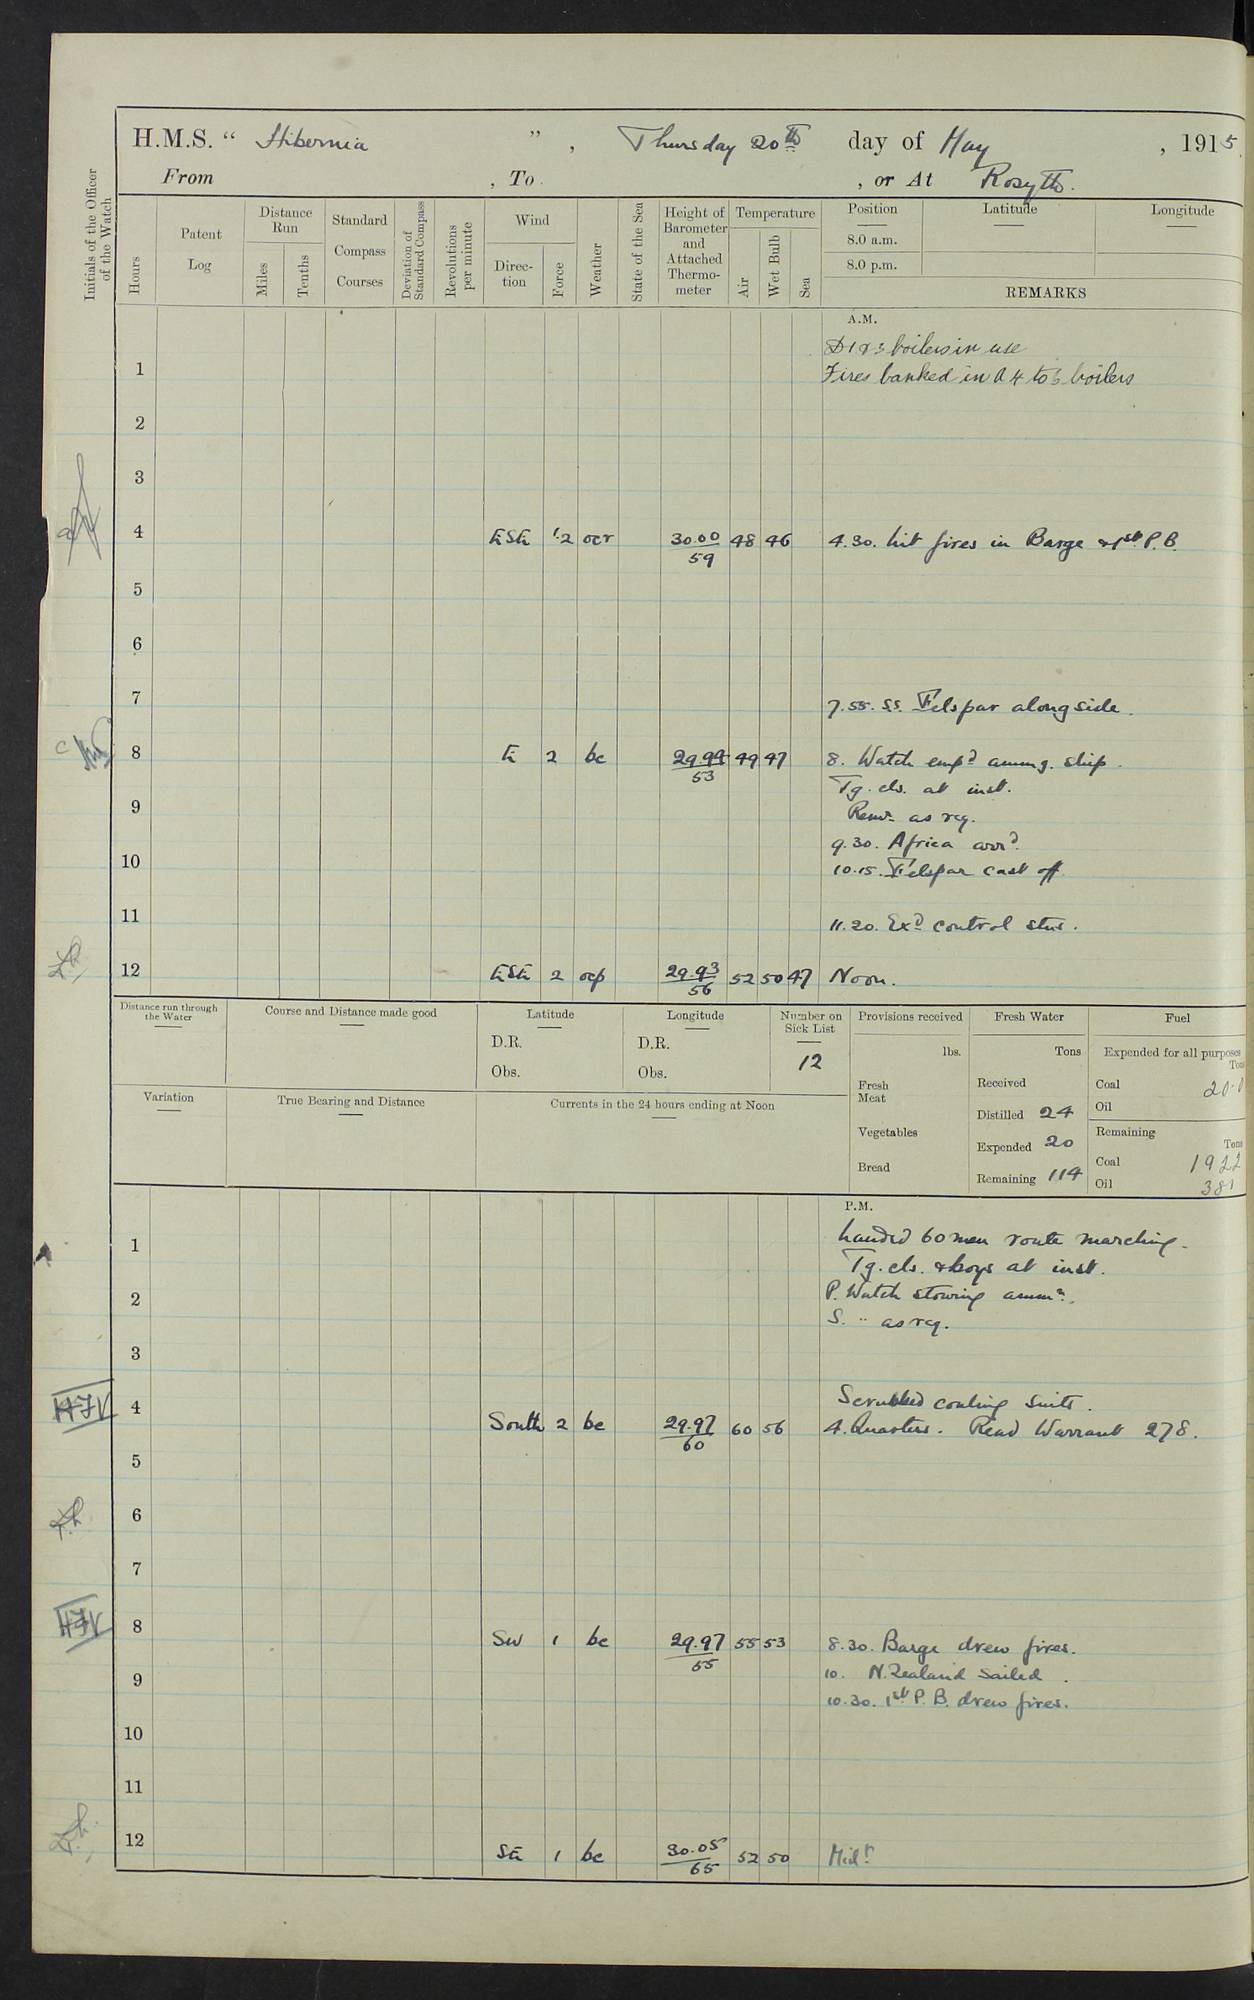 H.M.S. " Hibernia ", Thursday 20th day of May, 1915
From , To , or At Rosyth.
Initials of the Officer of the Watch
Hours
Patent Log
Distance Run
Miles
Tenths
Standard Compass Courses
Deviation of Standard Compass
Revolutions per minute
Wind
Direction
Force
Weather
State of the Sea
Height of Barometer and Attached Thermometer
Temperature
Air
Wet Bulb
Sea
Position
Latitude
Longitude
8.0 a.m.
8.0 p.m.
REMARKS
A.M.
D1 & 3 boilers in use
1 Fires banked in A 4 to 6 boilers
2
3
4 ESE 1.2 ocr 30.00/59 48 46 4.30. lit fires in Barge & 1st P.B.
5
6
7 7.55. S.S. Felspar alongside.
8 E 2 bc 29.94/53 49 47 8. Watch empd ammg. ship.
Tg. cls. at inst.
9 Remr as req.
9.30. Africa arrd.
10 10.15. Felspar cast off
11 11.20. Exd control stns.
12 ESE 2 ocp 29.93/56 52 50 47 Noon.
Distance run through the Water
Course and Distance made good
Latitude
D.R.
Obs.
Longitude
D.R.
Obs.
Number on Sick List
12
Provisions received
lbs.
Fresh Meat
Vegetables
Bread
Fresh Water
Tons
Received
Distilled 24
Expended 20
Remaining 114
Fuel
Expended for all purposes
Tons
Coal 20.0
Oil
Remaining
Tons
Coal 1922
Oil 381
Variation
True Bearing and Distance
Currents in the 24 hours ending at Noon
P.M.
1 Landed 60 men route marching.
Tg. cls. & boys at inst.
2 P. Watch stowing ammn.
S. " as req.
3
Scrubbed coaling suits.
4 South 2 bc 29.97/60 60 56 4. Quarters. Read Warrant 278.
5
6
7
8 SW 1 bc 29.97/55 55 53 8.30. Barge drew fires.
9 10. N. Zealand sailed.
10.30. 1st P.B. drew fires.
10
11
12 SE 1 bc 30.05/65 52 50 Midt.